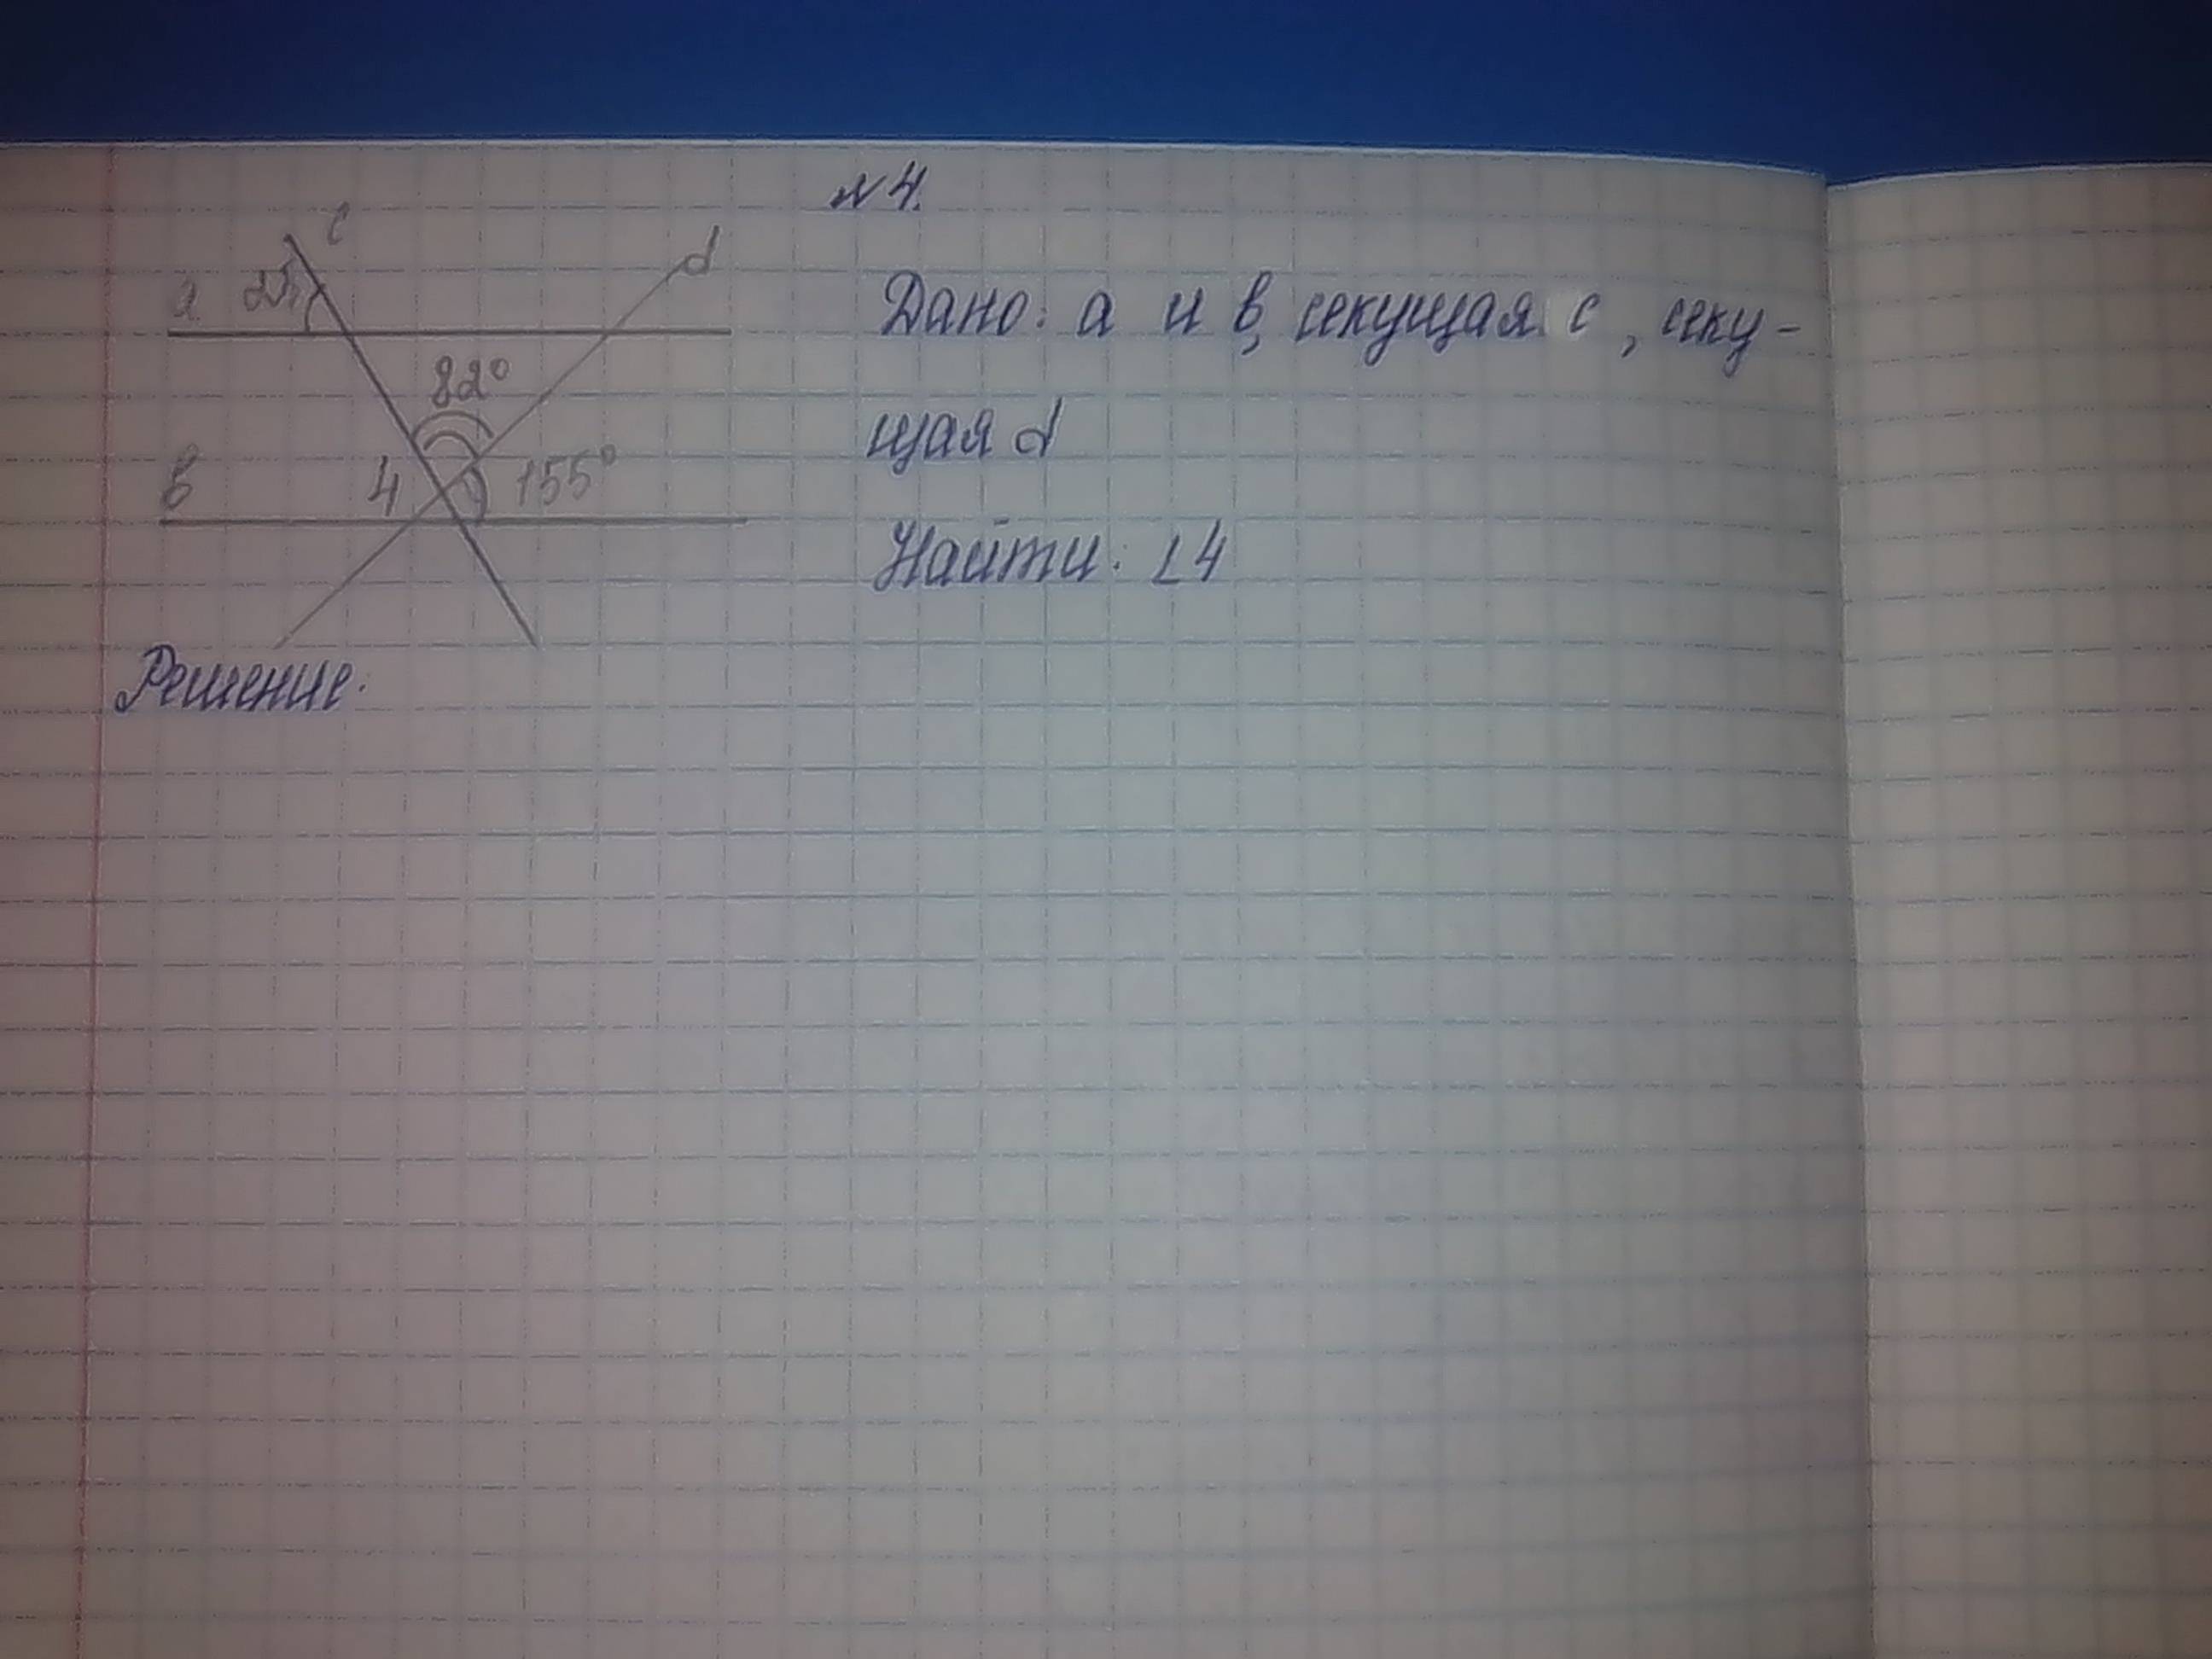 №4.
c
d
a 25°
82°
в 4 155°
Дано: а и в, секущая с, секу-
щая d
Найти: ∠4
Решение: